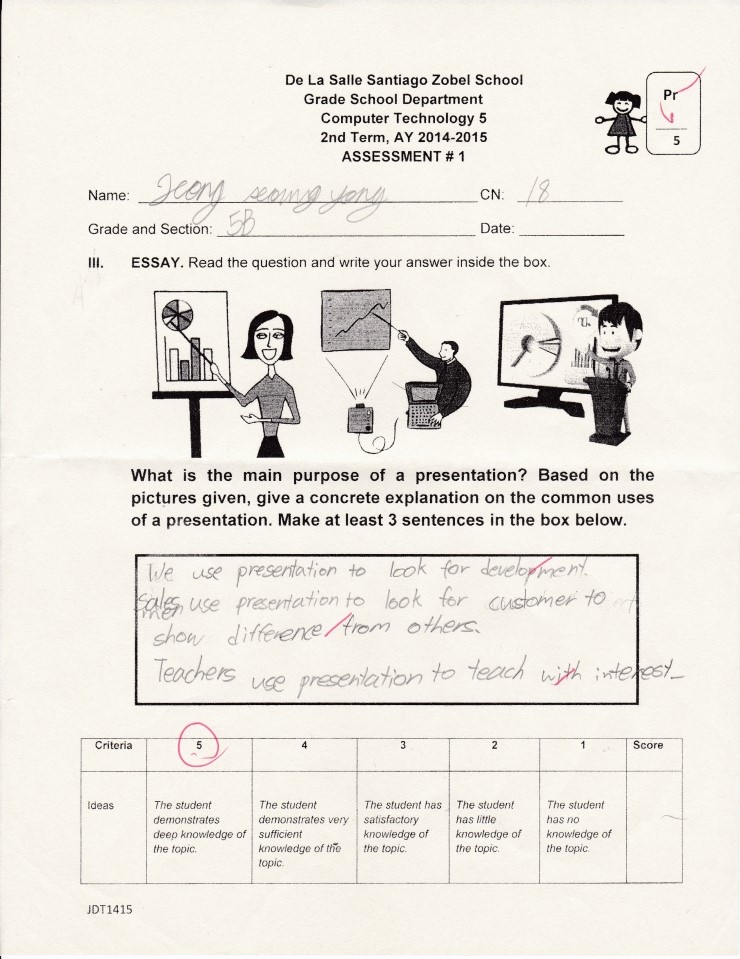 De La Salle Santiago Zobel School
Grade School Department
Computer Technology 5
2nd Term, AY 2014-2015
ASSESSMENT # 1
Pr
5
Name: Jeong seoung yong CN: 18
Grade and Section: 5B Date:
III. ESSAY. Read the question and write your answer inside the box.
What is the main purpose of a presentation? Based on the
pictures given, give a concrete explanation on the common uses
of a presentation. Make at least 3 sentences in the box below.
We use presentation to look for development.
Sales men use presentation to look for customer to
show difference from others.
Teachers use presentation to teach with interest
Criteria 5 4 3 2 1 Score
Ideas The student The student The student has The student The student
demonstrates demonstrates very satisfactory has little has no
deep knowledge of sufficient knowledge of knowledge of knowledge of
the topic. knowledge of the the topic. the topic. the topic.
topic.
JDT1415